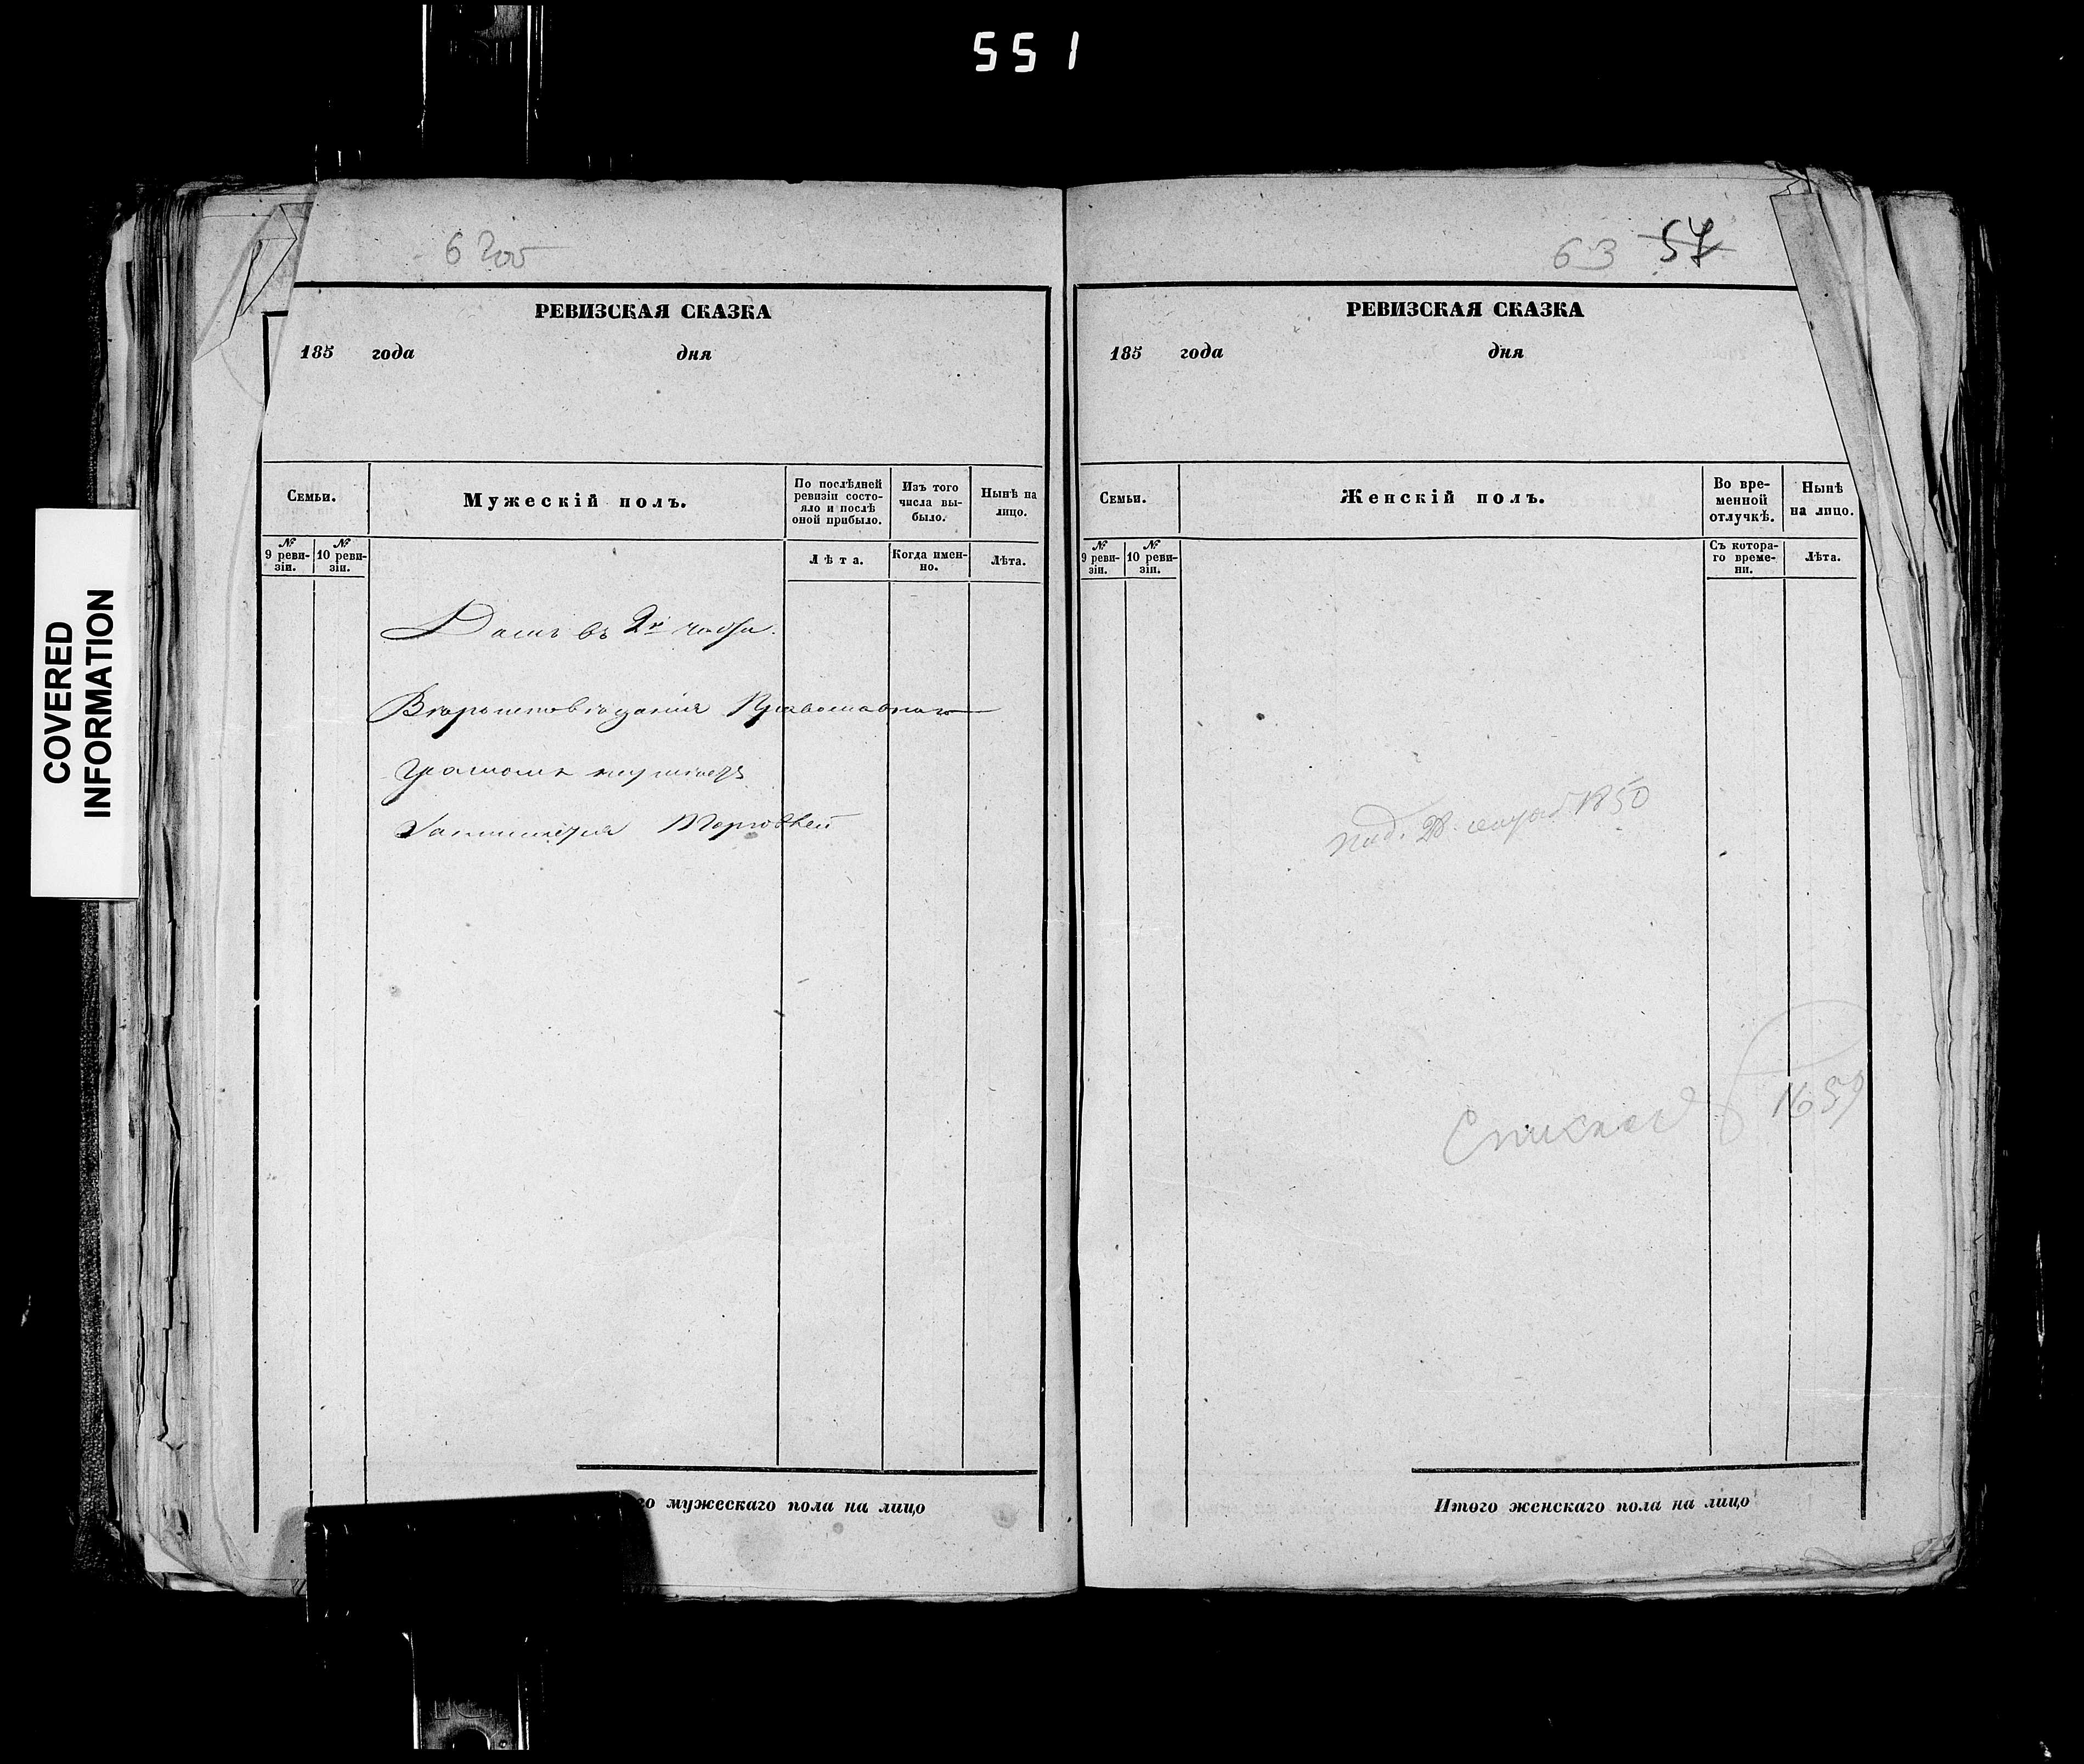 551
COVERED
INFORMATION
6 Гов
РЕВИЗСКАЯ СКАЗКА
185 года дня
Семьи.
Мужескій полъ.
По послѣдней
ревизіи состо-
яло и послѣ
оной прибыло.
Изъ того
числа вы-
было.
Нынѣ на
лицо.
№
9 реви-
зіи.
№
10 реви-
зіи.
Лѣта.
Когда имен-
но.
Лѣта.
Домъ въ 2й части.
Вѣроисповѣданія Православнаго
Грамотѣ
Занимается Торговлей
го мужескаго пола на лицо
63 57
РЕВИЗСКАЯ СКАЗКА
185 года дня
Семьи.
Женскій полъ.
Во вре-
менной
отлучкѣ.
Нынѣ
на лицо.
№
9 реви-
зіи.
№
10 реви-
зіи.
Съ котора-
го време-
ни.
Лѣта.
28 1850
1659
Итого женскаго пола на лицо